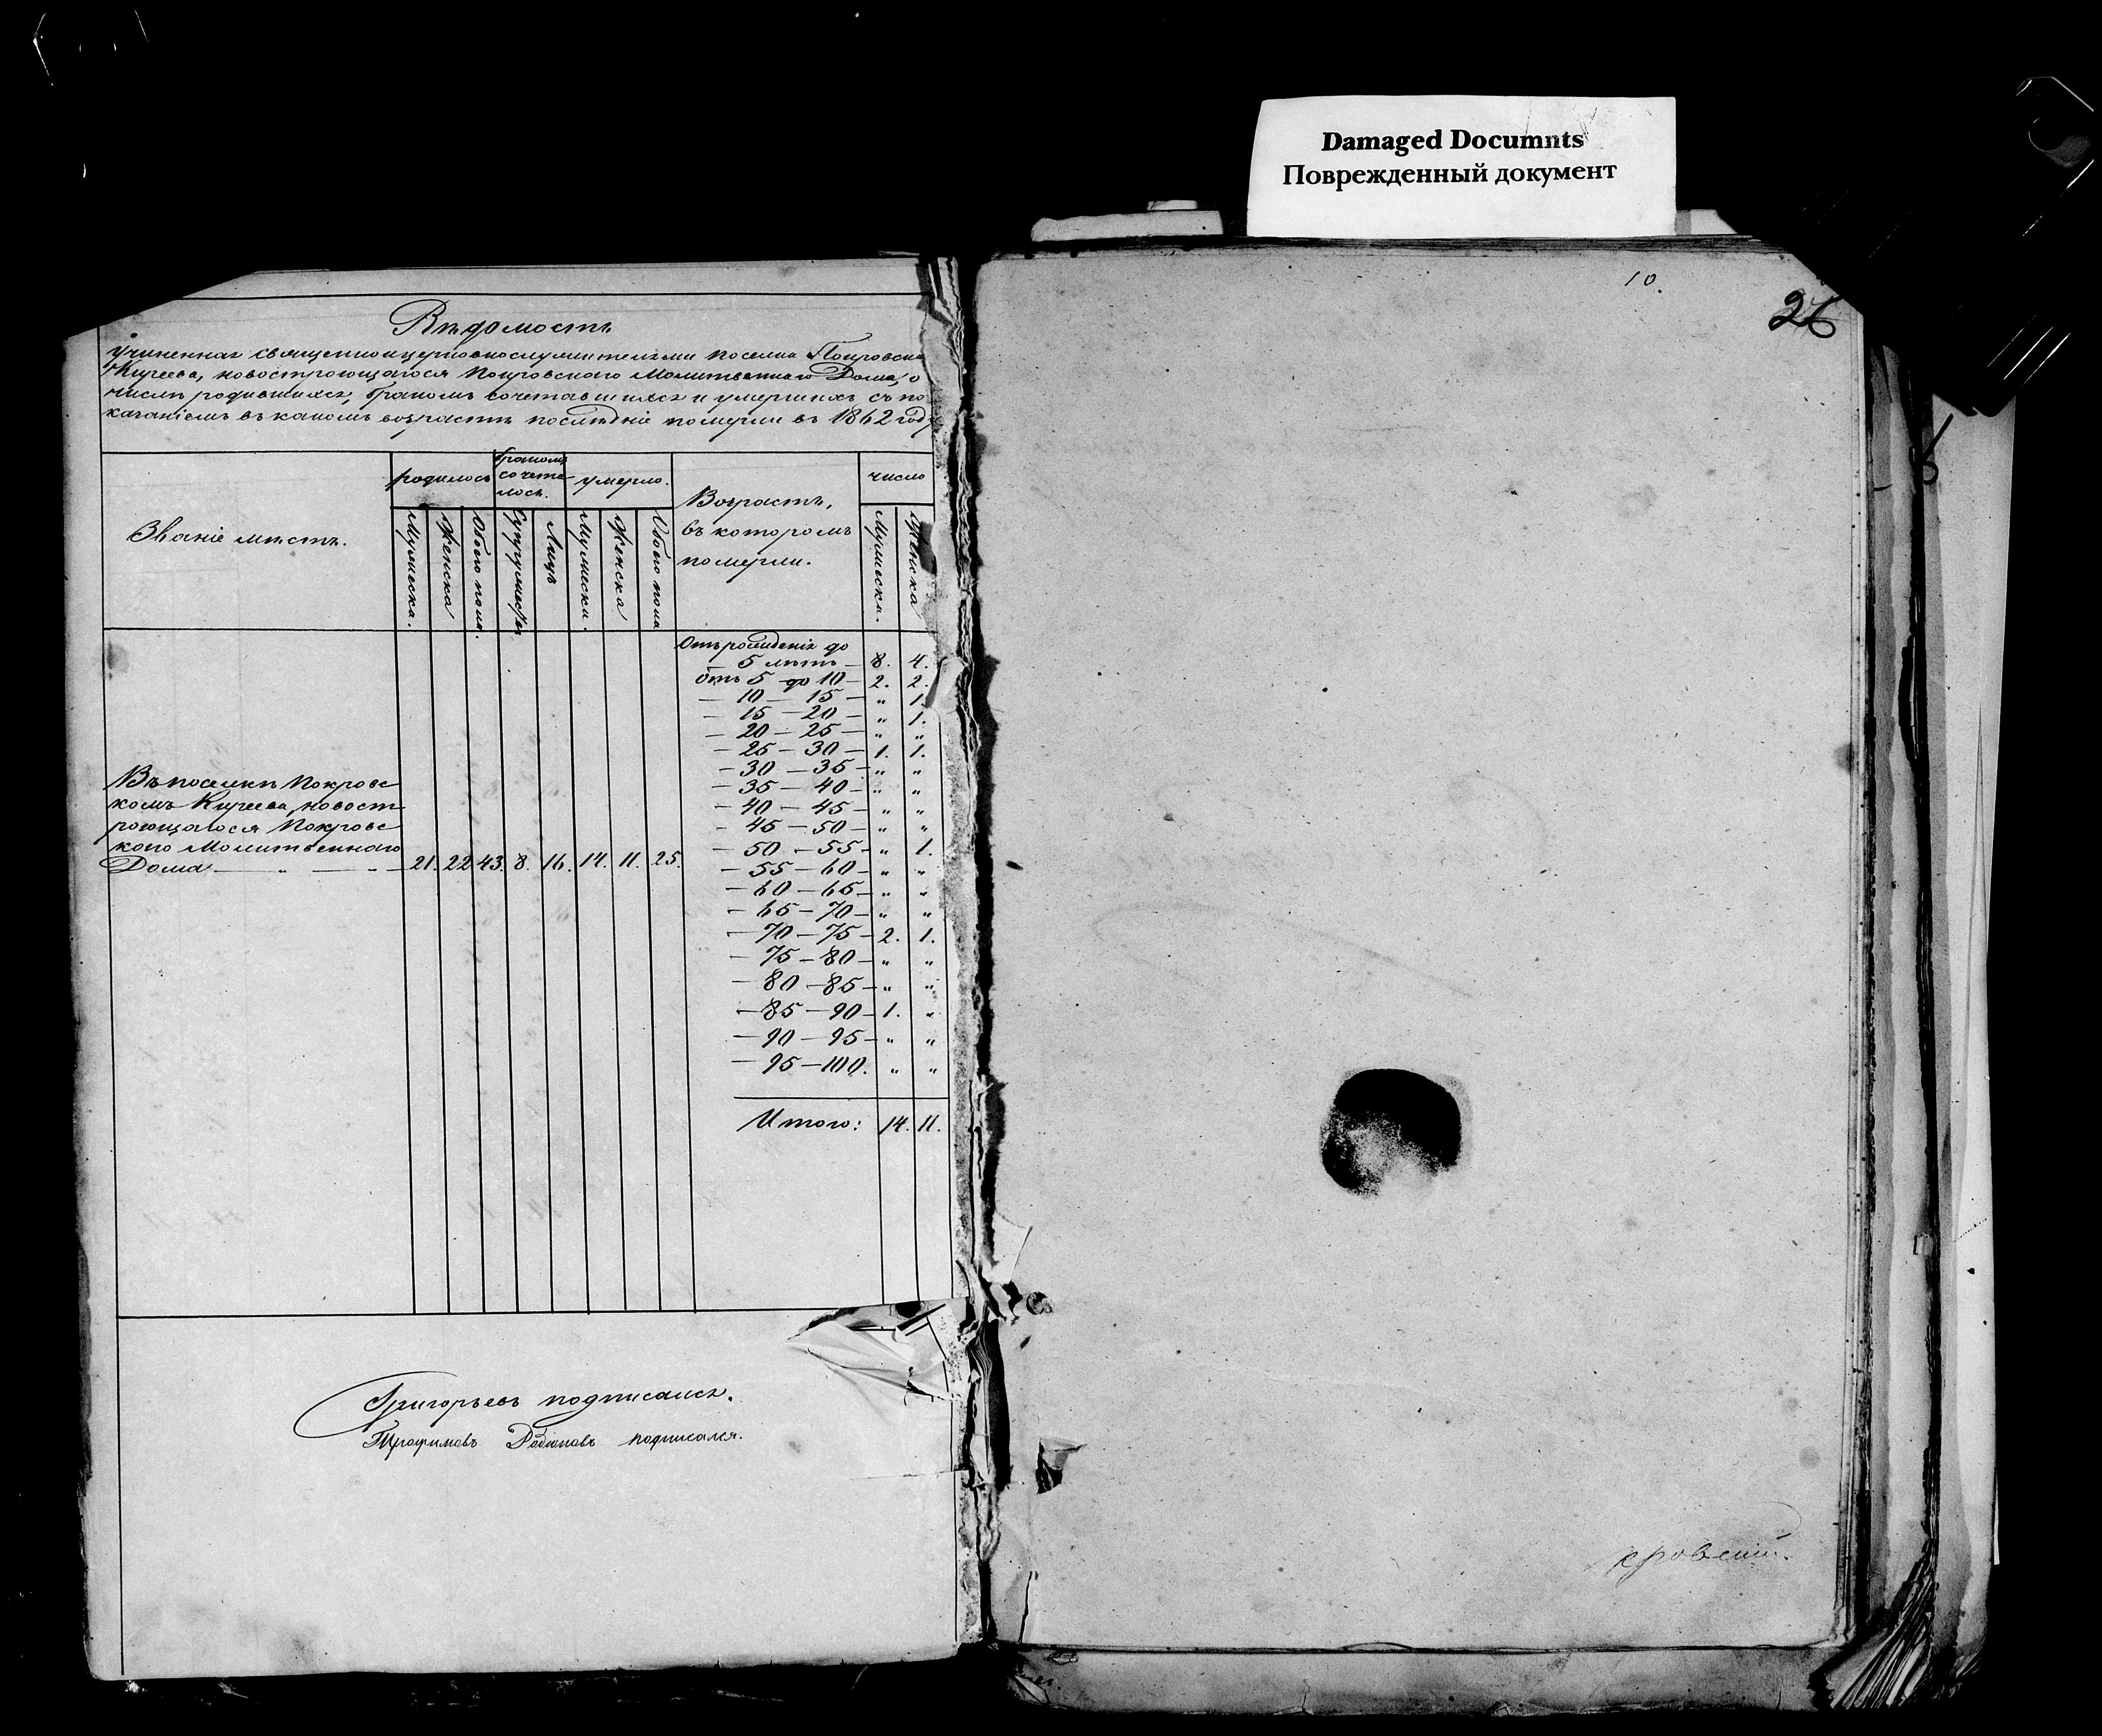 Damaged Documnts
Поврежденный документ
10.
26
Вѣдомость
учиненная священноицерковнослужителями поселка Покровска
Киреева, новостроющагося Покровскаго Молитвеннаго Дома, о
числѣ родившихся, бракомъ сочетавшихся и умершихъ съ по
казаніемъ въ какомъ возрастѣ послѣдніе померли въ 1862 году
Званіе мѣстъ.
родилось
бракомъ
сочета-
лось.
умерло.
Возрастъ,
въ которомъ
померли.
число
Мужеска.
Женска
Обоего пола.
Супружествъ
Лицъ
Мужеска.
Женска
Обоего пола
Мужеска.
Женска
Отъ рожденія до
— 5 лѣтъ — 8. 4.
отъ 5 до 10 — 2. 2.
— 10 — 15 — „ 1.
— 15 — 20 — „ 1.
— 20 — 25 — „ „
— 25 — 30 — 1. 1.
— 30 — 35 — „ „
— 35 — 40 — „ „
— 40 — 45 — „ „
— 45 — 50 — „ „
— 50 — 55 — „ 1.
— 55 — 60 — „ „
— 60 — 65 — „ „
— 65 — 70 — „ „
— 70 — 75 — 2. 1.
— 75 — 80 — „ „
— 80 — 85 — „ „
— 85 — 90 — 1. „
— 90 — 95 — „ „
— 95 — 100. „ „
Итого: 14. 11.
Въ поселкѣ Покровс
комъ Киреева, новост
роющагося Покровс
каго Молитвеннаго
Дома — „ — „ — 21. 22 43. 8. 16. 14. 11. 25.
Григорьевъ подписался.
Трофимовъ Родіоновъ подписался.
кровский.